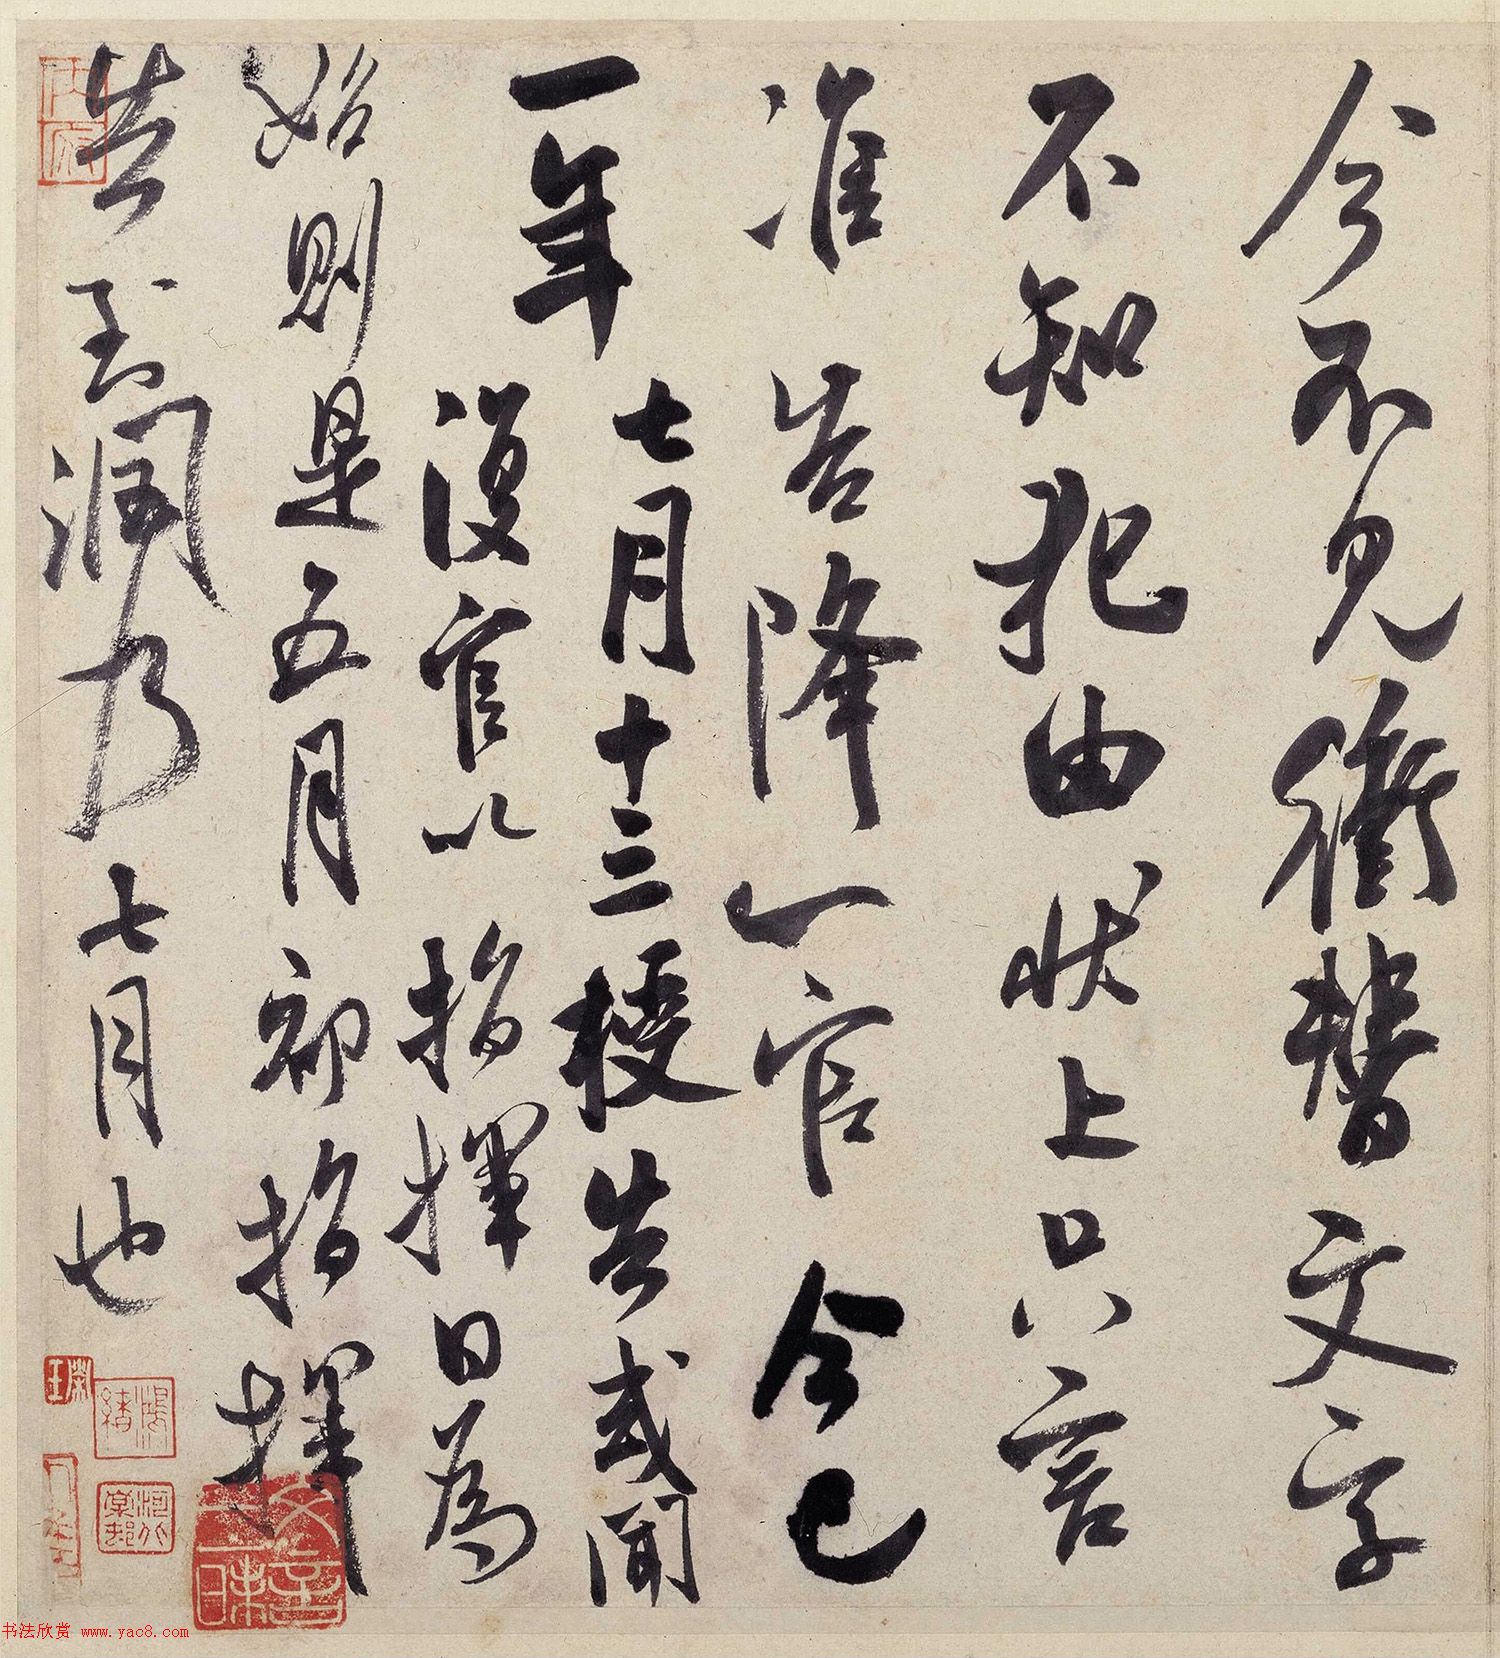 今不見衝替文字
不知犯由狀上只言
准告降一官今已
一年七月十三授告或聞
復官以指揮日為
始則是五月初指揮
告到潤乃七月也
書法欣赏 www.yac8.com